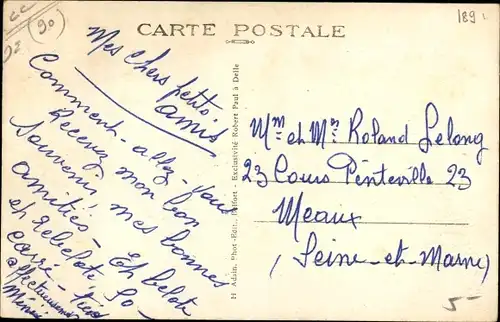 CARTE POSTALE
189
(90)
Mes chers petits
amis
Comment-allez-vous
Recevez mon bon
souvenir, mes bonnes
amitiés - Eh belote
et rebelote,
carré -
affectueusement
Mme et Mr Roland Lelong
23 Cours Pinteville 23
Meaux
(Seine-et-Marne)
5-
H Adain, Phot-Edit., Belfort - Exclusivité Robert Paul à Delle